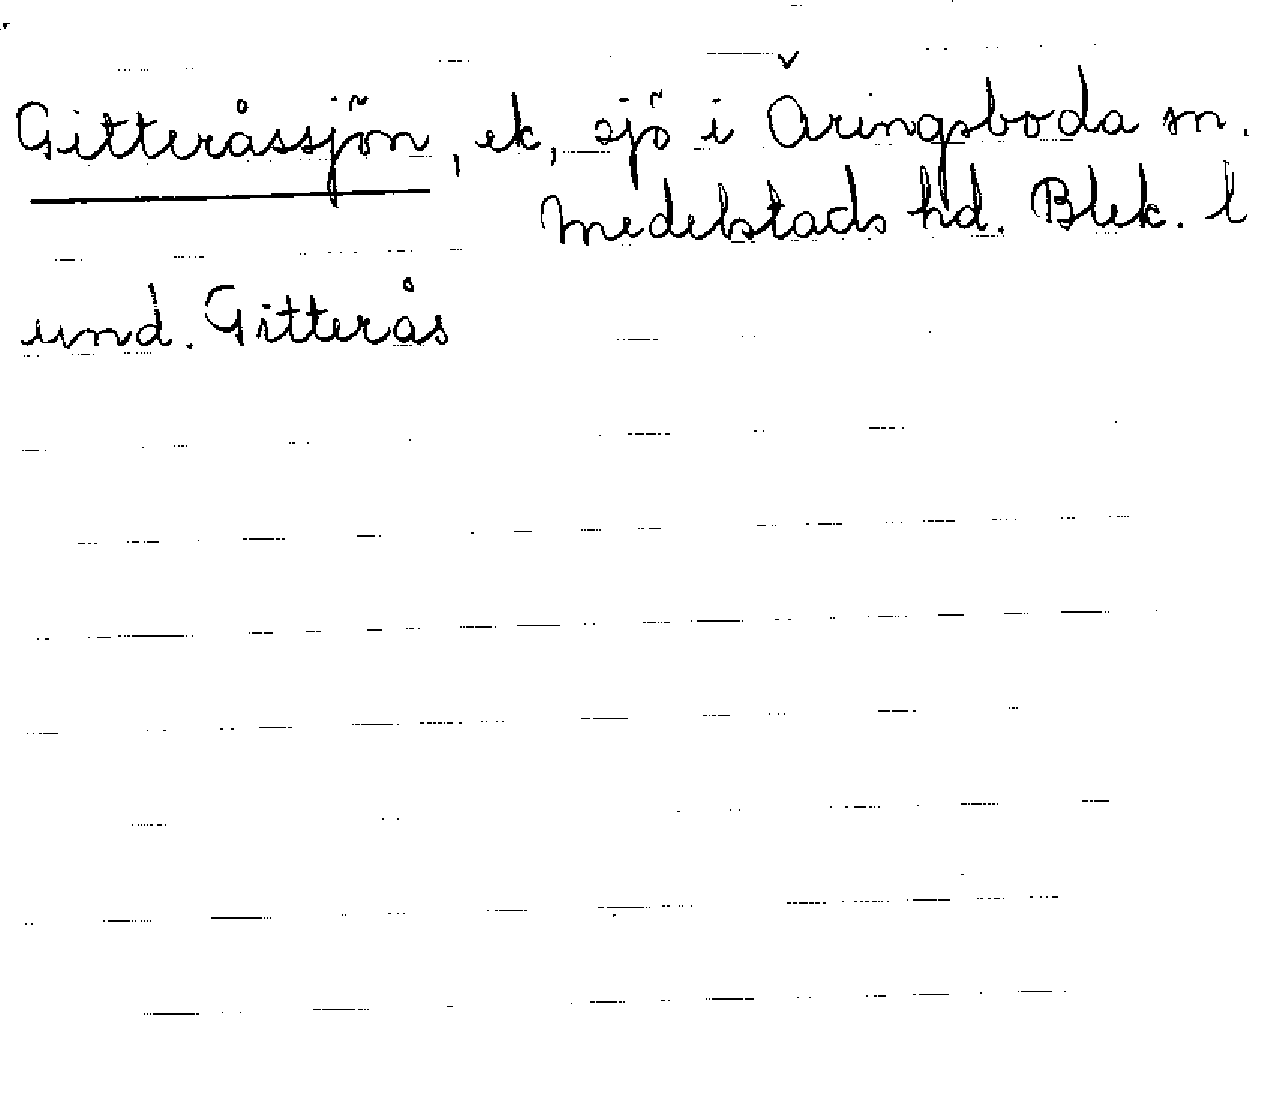 Gitteråssjön, ek, sjö i Åringsboda sn.
Medelstads hd. Blek. l
und. Gitterås